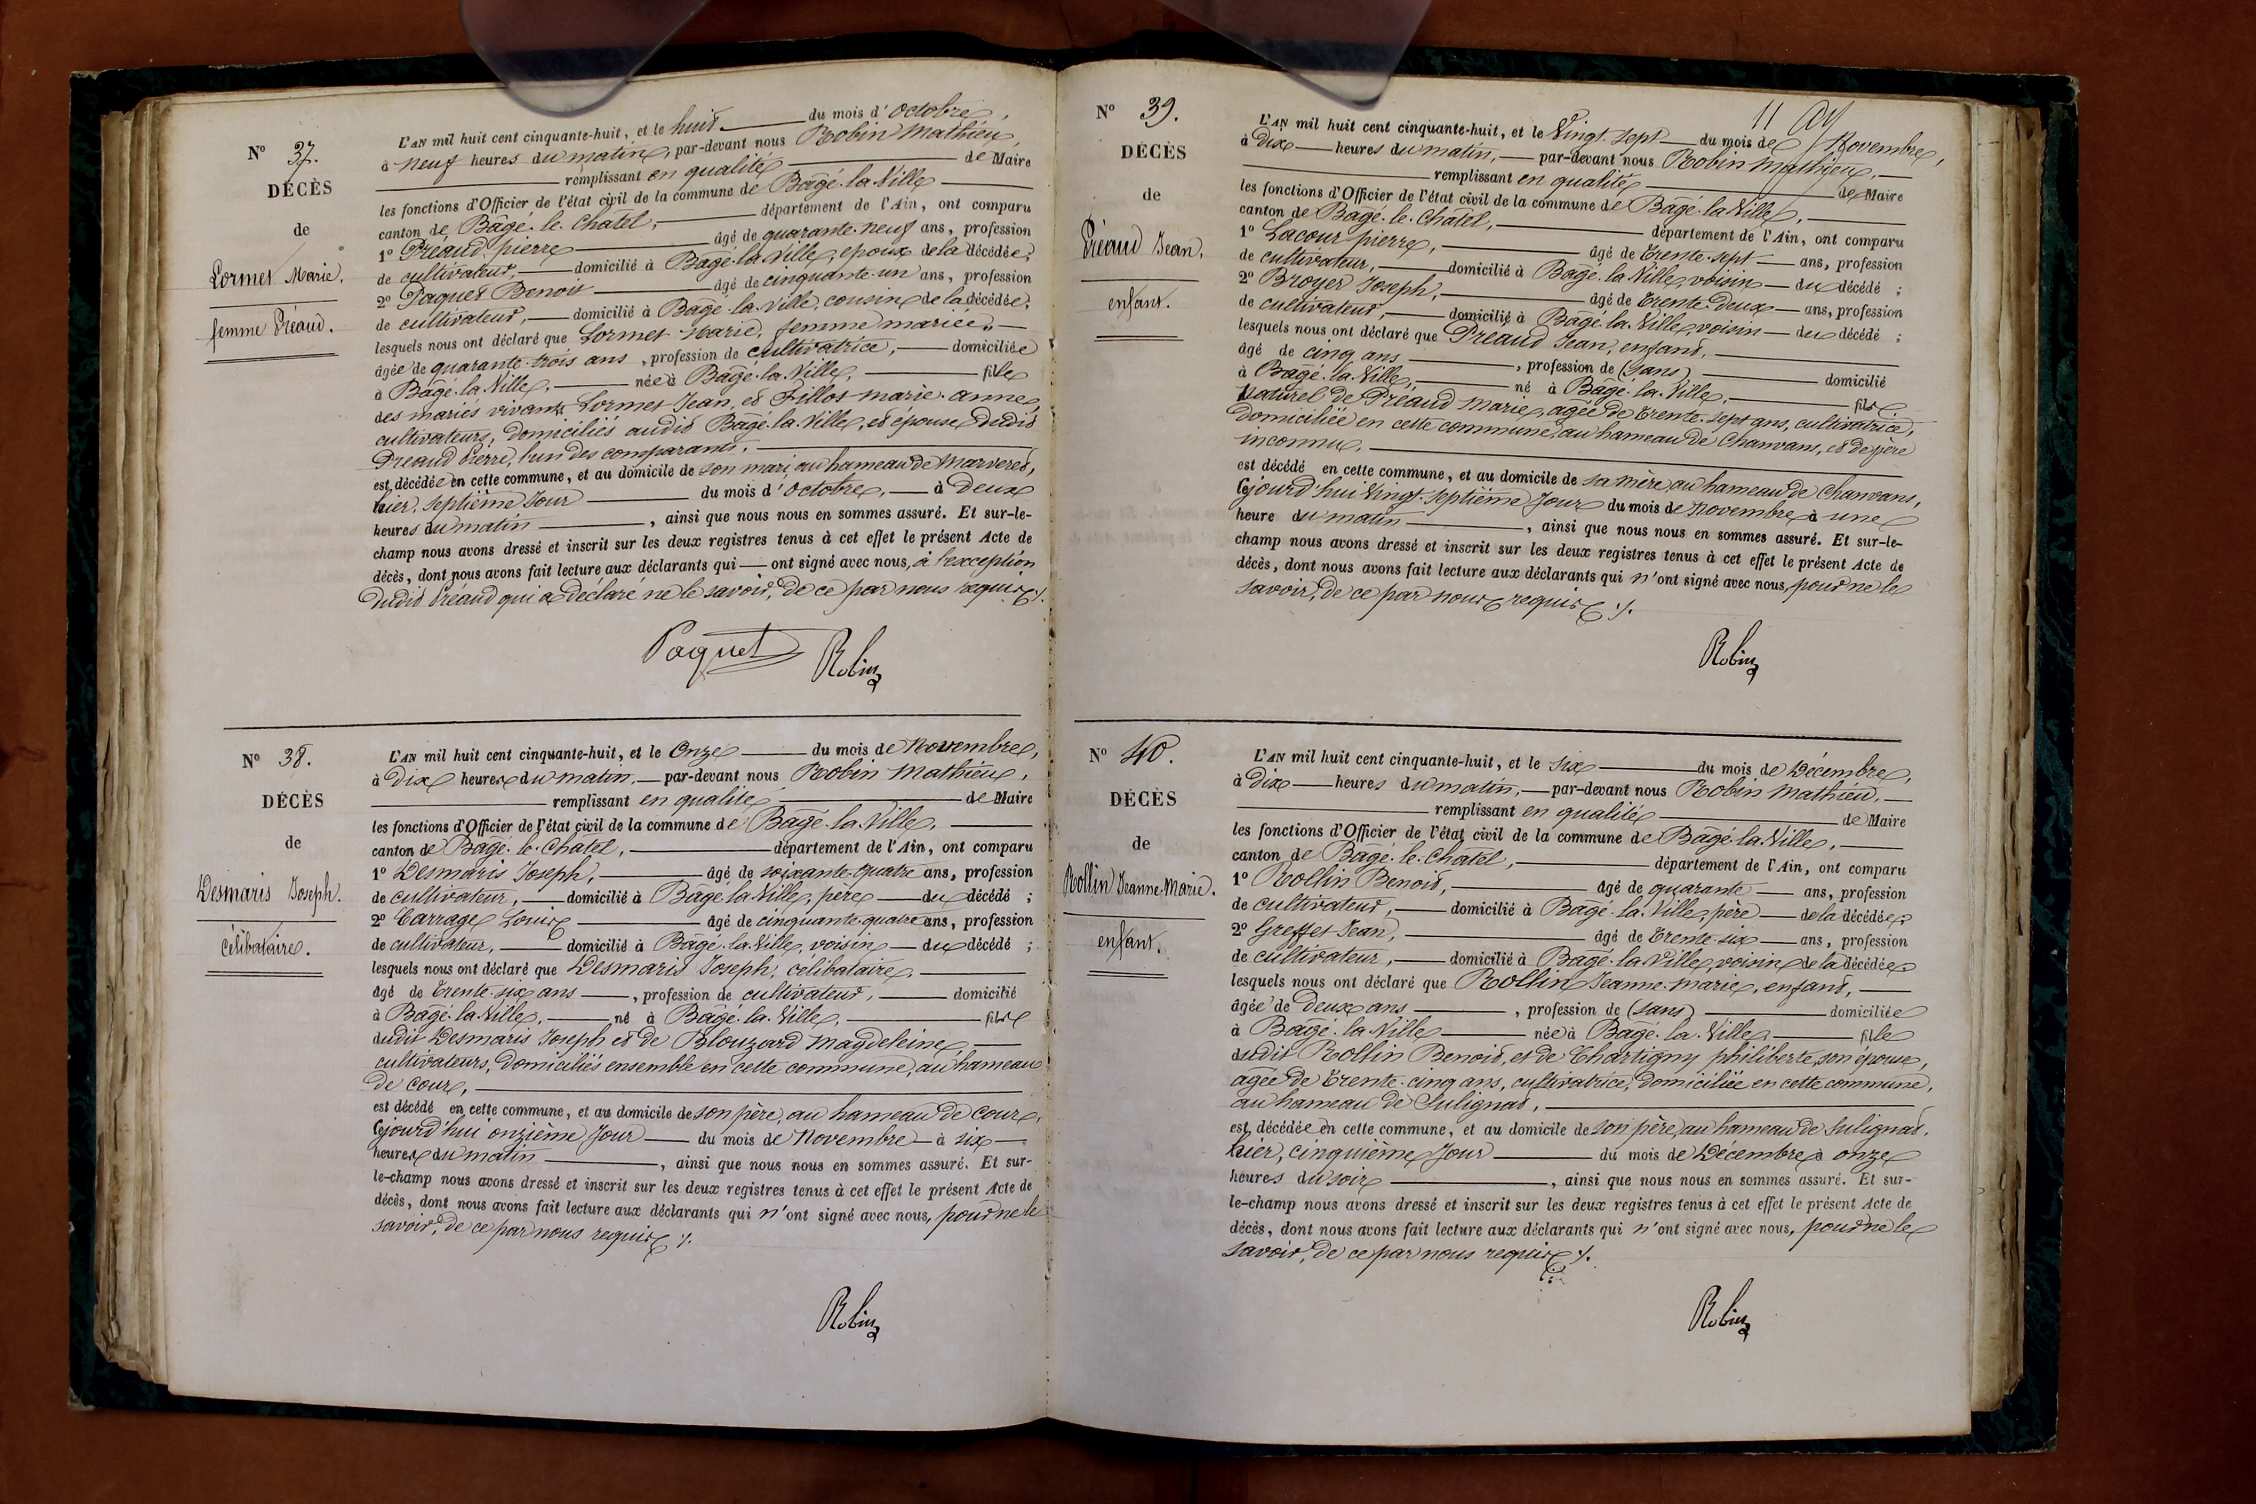 N° 37.
DÉCÈS
de
Lormet Marie.
femme Préaud.
L'AN mil huit cent cinquante-huit, et le huit du mois d'Octobre,
à neuf heures du matin, par-devant nous Robin Mathieu,
remplissant en qualité de Maire
les fonctions d'Officier de l'état civil de la commune de Bagé-la-Ville
canton de Bagé-le-Châtel, département de l'Ain, ont comparu
1° Préaud pierre âgé de quarante-neuf ans, profession
de cultivateur, domicilié à Bagé-la-Ville, époux de la décédée;
2° Paquet Benoit âgé de cinquante-un ans, profession
de cultivateur, domicilié à Bagé-la-Ville, cousin de la décédée;
lesquels nous ont déclaré que Lormet Marie, femme mariée,
âgée de quarante-trois ans, profession de cultivatrice, domiciliée
à Bagé-la-Ville, née à Bagé-la-Ville, fille
des mariés vivants Lormet Jean, et Fillot marie-anne,
cultivateurs, domiciliés audit Bagé-la-Ville, et épouse dudit
Préaud Pierre, l'un des comparants,
est décédée en cette commune, et au domicile de son mari, au hameau de Marveres,
hier, septième Jour du mois d'Octobre, à Deux
heures du matin, ainsi que nous nous en sommes assuré. Et sur-le-
champ nous avons dressé et inscrit sur les deux registres tenus à cet effet le présent Acte de
décès, dont nous avons fait lecture aux déclarants qui ont signé avec nous, à l'exception
dudit Préaud qui a déclaré ne le savoir, de ce par nous requis ./.
Paquet Robin
N° 38.
DÉCÈS
de
Desmaris Joseph.
célibataire.
L'AN mil huit cent cinquante-huit, et le Onze du mois de Novembre,
à Dix heures du matin, par-devant nous Robin Mathieu,
remplissant en qualité de Maire
les fonctions d'Officier de l'état civil de la commune de Bagé-la-Ville,
canton de Bagé-le-Châtel, département de l'Ain, ont comparu
1° Desmaris Joseph, âgé de soixante-quatre ans, profession
de cultivateur, domicilié à Bagé-la-Ville, père du décédé ;
2° Carrage Louis âgé de cinquante-quatre ans, profession
de cultivateur, domicilié à Bagé-la-Ville, voisin du décédé ;
lesquels nous ont déclaré que Desmaris Joseph, célibataire,
âgé de Trente-six ans, profession de cultivateur, domicilié
à Bagé-la-Ville, né à Bagé-la-Ville, fils
dudit Desmaris Joseph et de Blouzard Magdeleine,
cultivateurs, domiciliés ensemble en cette commune, au hameau
de cour,
est décédé en cette commune, et au domicile de son père, au hameau de cour,
Cejourd'hui onzième Jour du mois de Novembre à six
heures du matin, ainsi que nous nous en sommes assuré. Et sur-
le-champ nous avons dressé et inscrit sur les deux registres tenus à cet effet le présent Acte de
décès, dont nous avons fait lecture aux déclarants qui n'ont signé avec nous, pour ne le
savoir, de ce par nous requis ./.
Robin
11
N° 39.
DÉCÈS
de
Préaud Jean.
enfant.
L'AN mil huit cent cinquante-huit, et le Vingt-sept du mois de Novembre,
à Dix heures du matin, par-devant nous Robin Mathieu,
remplissant en qualité de Maire
les fonctions d'Officier de l'état civil de la commune de Bagé-la-Ville,
canton de Bagé-le-Châtel, département de l'Ain, ont comparu
1° Lacour pierre, âgé de Trente-sept ans, profession
de cultivateur, domicilié à Bagé-la-Ville, voisin du décédé ;
2° Broyer Joseph, âgé de Trente-Deux ans, profession
de cultivateur, domicilié à Bagé-la-Ville, voisin du décédé ;
lesquels nous ont déclaré que Préaud Jean, enfant,
âgé de cinq ans, profession de (sans) domicilié
à Bagé-la-Ville, né à Bagé-la-Ville, fils
Naturel de Préaud Marie, agée de Trente-sept ans, cultivatrice,
domiciliée en cette commune, au hameau de Chanvans, et de père
inconnu,
est décédé en cette commune, et au domicile de sa mère, au hameau de Chanvans,
Cejourd'hui Vingt-septième Jour du mois de Novembre à une
heure du matin, ainsi que nous nous en sommes assuré. Et sur-le-
champ nous avons dressé et inscrit sur les deux registres tenus à cet effet le présent Acte de
décès, dont nous avons fait lecture aux déclarants qui n'ont signé avec nous, pour ne le
savoir, de ce par nous requis ./.
Robin
N° 40.
DÉCÈS
de
Rollin Jeanne-Marie.
enfant.
L'AN mil huit cent cinquante-huit, et le six du mois de Décembre,
à Dix heures du matin, par-devant nous Robin Mathieu,
remplissant en qualité de Maire
les fonctions d'Officier de l'état civil de la commune de Bagé-la-Ville,
canton de Bagé-le-Châtel, département de l'Ain, ont comparu
1° Rollin Benoit, âgé de quarante ans, profession
de cultivateur, domicilié à Bagé-la-Ville, père de la décédée;
2° Greffet Jean, âgé de Trente-six ans, profession
de cultivateur, domicilié à Bagé-la-Ville, voisin de la décédée;
lesquels nous ont déclaré que Rollin Jeanne-Marie, enfant,
âgée de Deux ans, profession de (sans) domiciliée
à Bagé-la-Ville née à Bagé-la-Ville fille
dudit Rollin Benoit, et de Chartigny philiberte, son épouse,
agée de Trente-cinq ans, cultivatrice, domiciliée en cette commune,
au hameau de Sulignat,
est décédée en cette commune, et au domicile de son père, au hameau de Sulignat,
hier, cinquième Jour du mois de Décembre à onze
heures du soir, ainsi que nous nous en sommes assuré. Et sur-
le-champ nous avons dressé et inscrit sur les deux registres tenus à cet effet le présent Acte de
décès, dont nous avons fait lecture aux déclarants qui n'ont signé avec nous, pour ne le
savoir, de ce par nous requis ./.
Robin